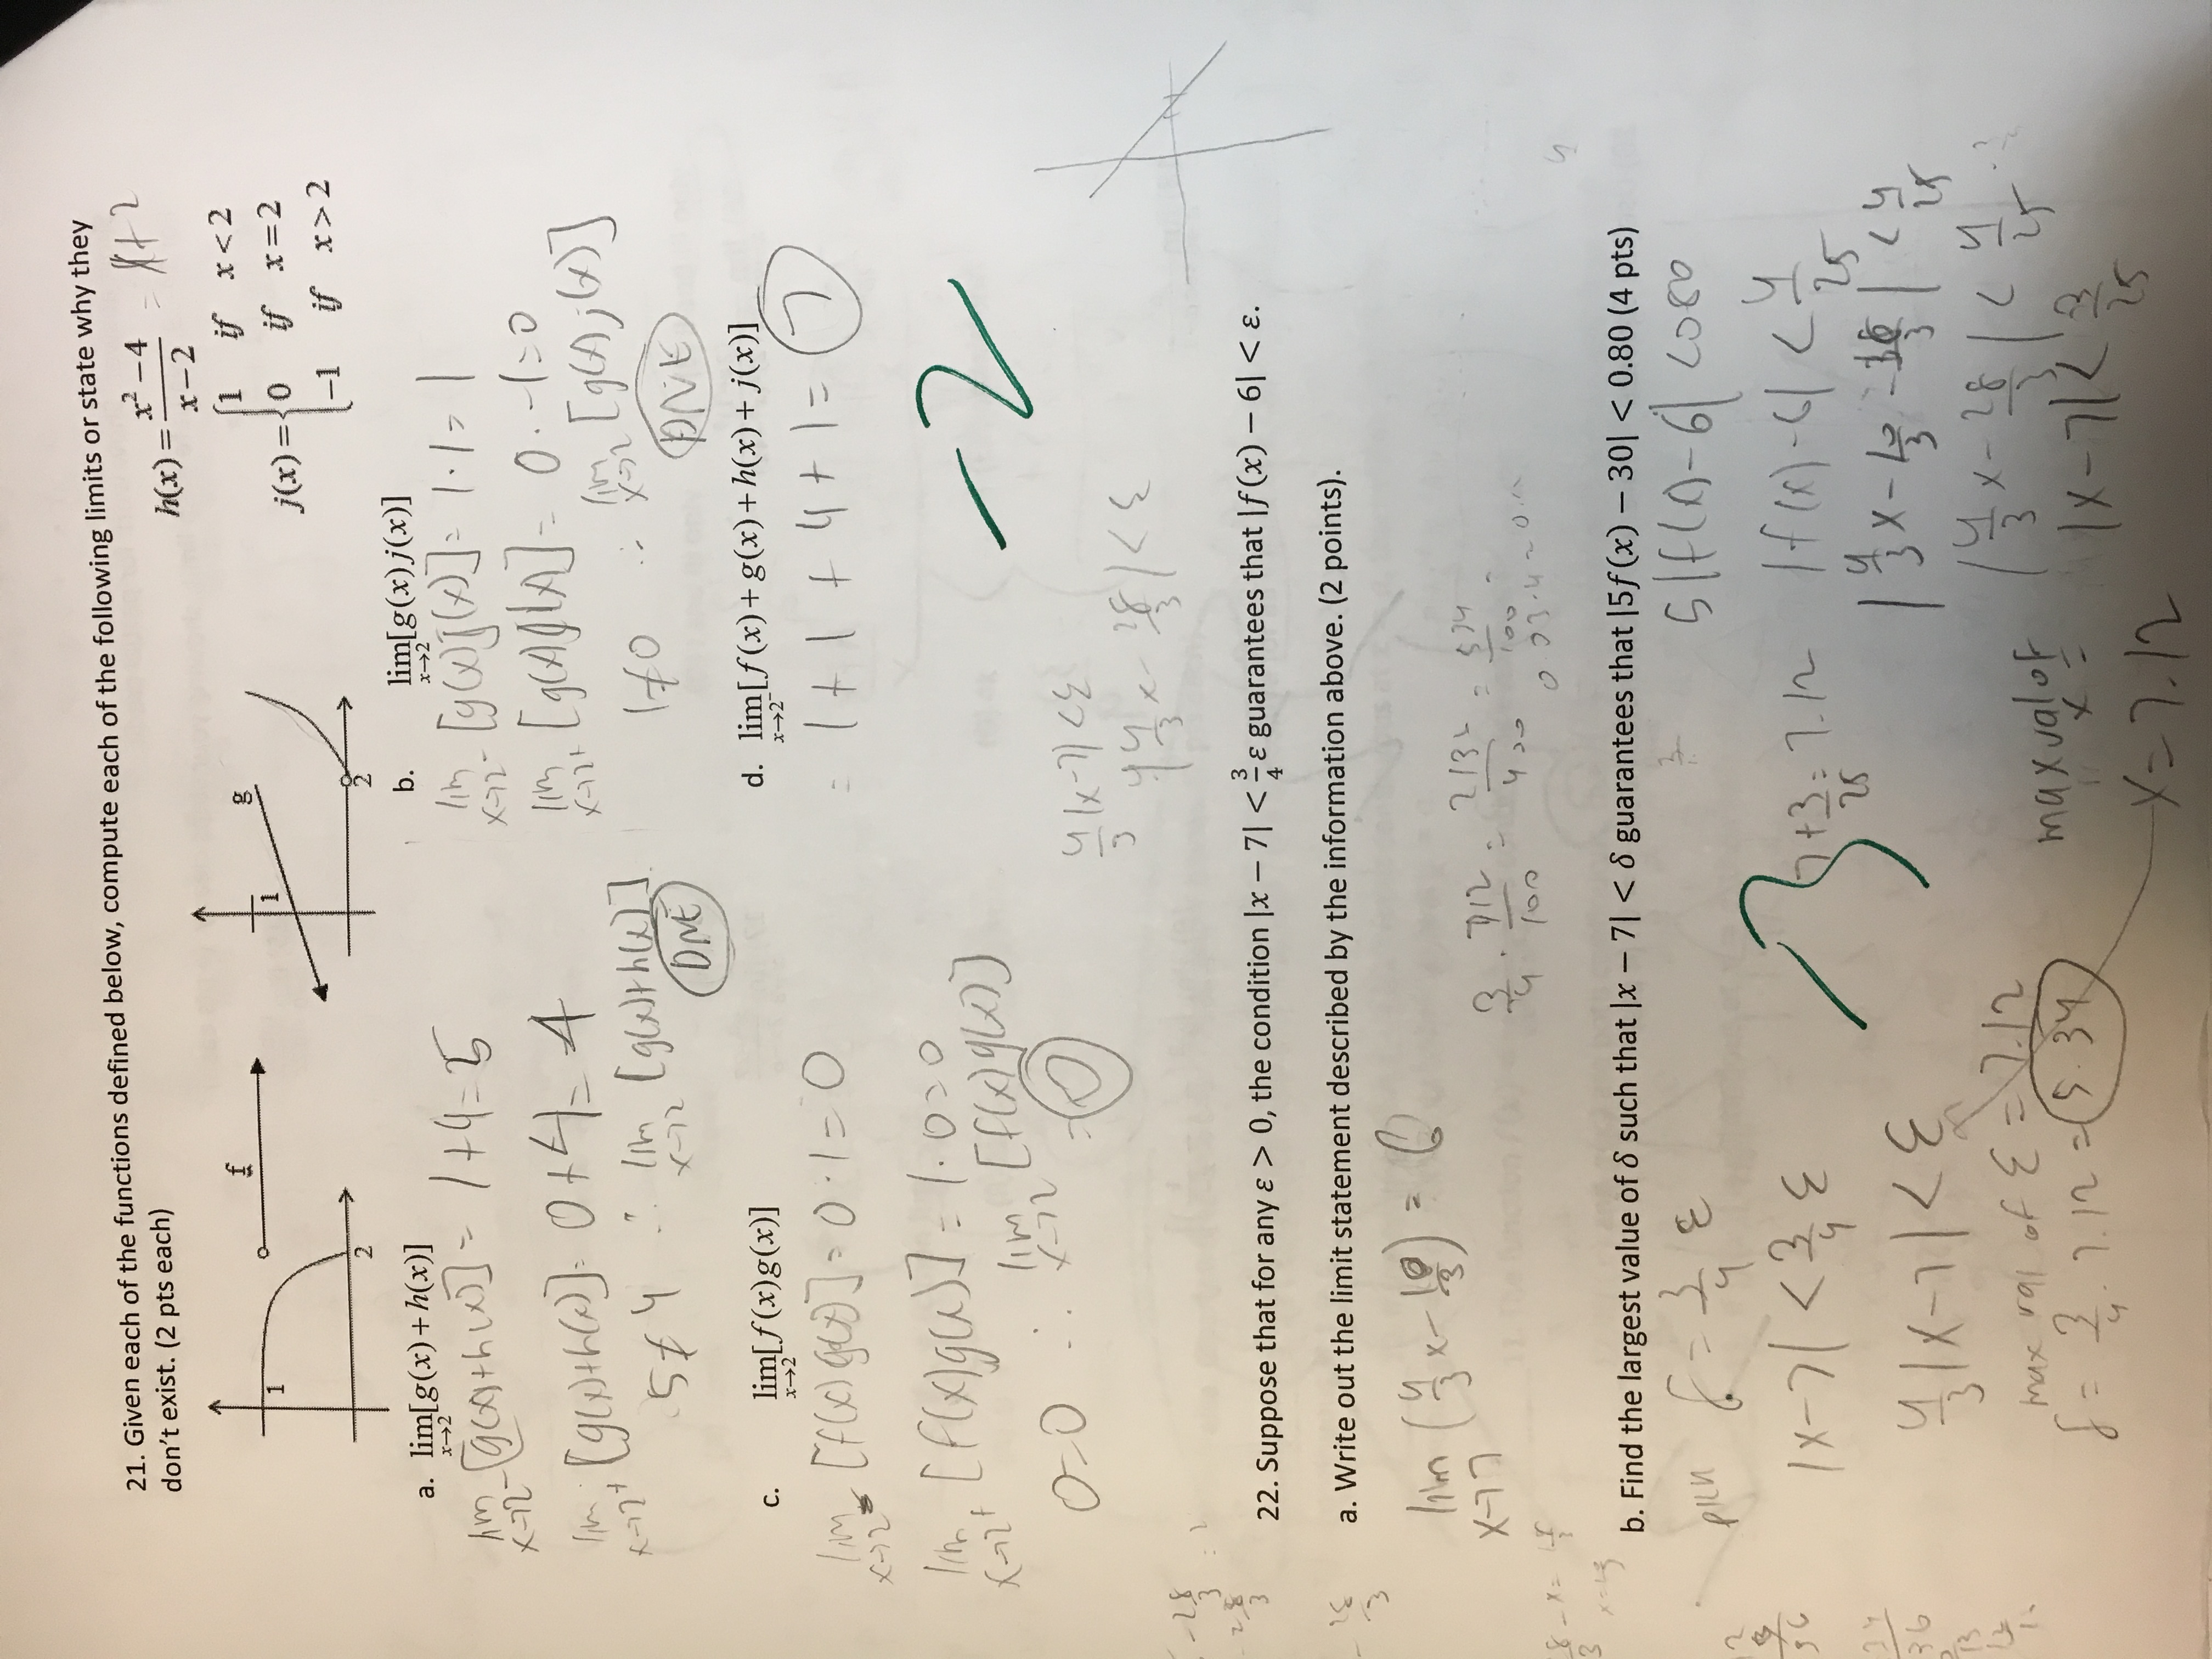 21. Given each of the functions defined below, compute each of the following limits or state why they
don't exist. (2 pts each)
h(x) = (x² − 4)/(x − 2) = x+2
j(x) = { 1 if x < 2
0 if x = 2
−1 if x > 2
f
1
2
g
1
2
a. lim x→2 [g(x) + h(x)]
lim x→2⁻ [g(x)+h(x)] = 1+4=5
lim x→2⁺ [g(x)+h(x)] = 0+4=4
5≠4 ∴ lim x→2 [g(x)+h(x)]
DNE
b. lim x→2 [g(x) j(x)]
lim x→2⁻ [g(x)j(x)] = 1·1= 1
lim x→2⁺ [g(x)j(x)] = 0·-1=0
1≠0 ∴ lim x→2 [g(x)j(x)]
DNE
c. lim x→2 [f(x)g(x)]
lim x→2⁻ [f(x)g(x)] = 0·1=0
lim x→2⁺ [f(x)g(x)] = 1·0=0
0=0 ∴ lim x→2 [f(x)g(x)]
= 0
d. lim x→2⁻ [f(x) + g(x) + h(x) + j(x)]
= 1+1+4+1= 7
-2
4/3 |x-7| <ε
|4/3 x - 28/3| < ε
22. Suppose that for any ε > 0, the condition |x − 7| < 3/4 ε guarantees that |f(x) − 6| < ε.
a. Write out the limit statement described by the information above. (2 points).
lim x→7 (4/3 x - 10/3) = 6
3/4 · 712/100 = 2136/400 = 534/100
b. Find the largest value of δ such that |x − 7| < δ guarantees that |5f(x) − 30| < 0.80 (4 pts)
pick δ = 3/4 ε
|x-7| < 3/4 ε
4/3 |x-7| < ε
max val of ε = 7.12
δ = 3/4 · 7.12 = 5.34
-3
7+3/25 = 7.12
5|f(x)-6| <0.80
|f(x)-6| < 4/25
|4/3 x - 10/3 - 18/3| < 4/25
|4/3 x - 28/3| < 4/25
|x-7| < 3/25
max val of x =
x=7.12